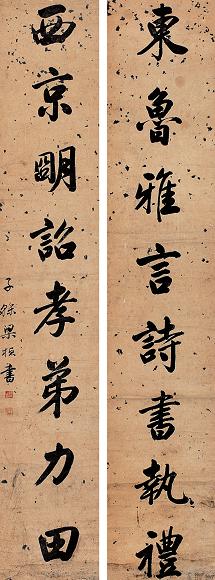 東魯雅言詩書執禮
西京明詔孝弟力田
子絲梁恒書